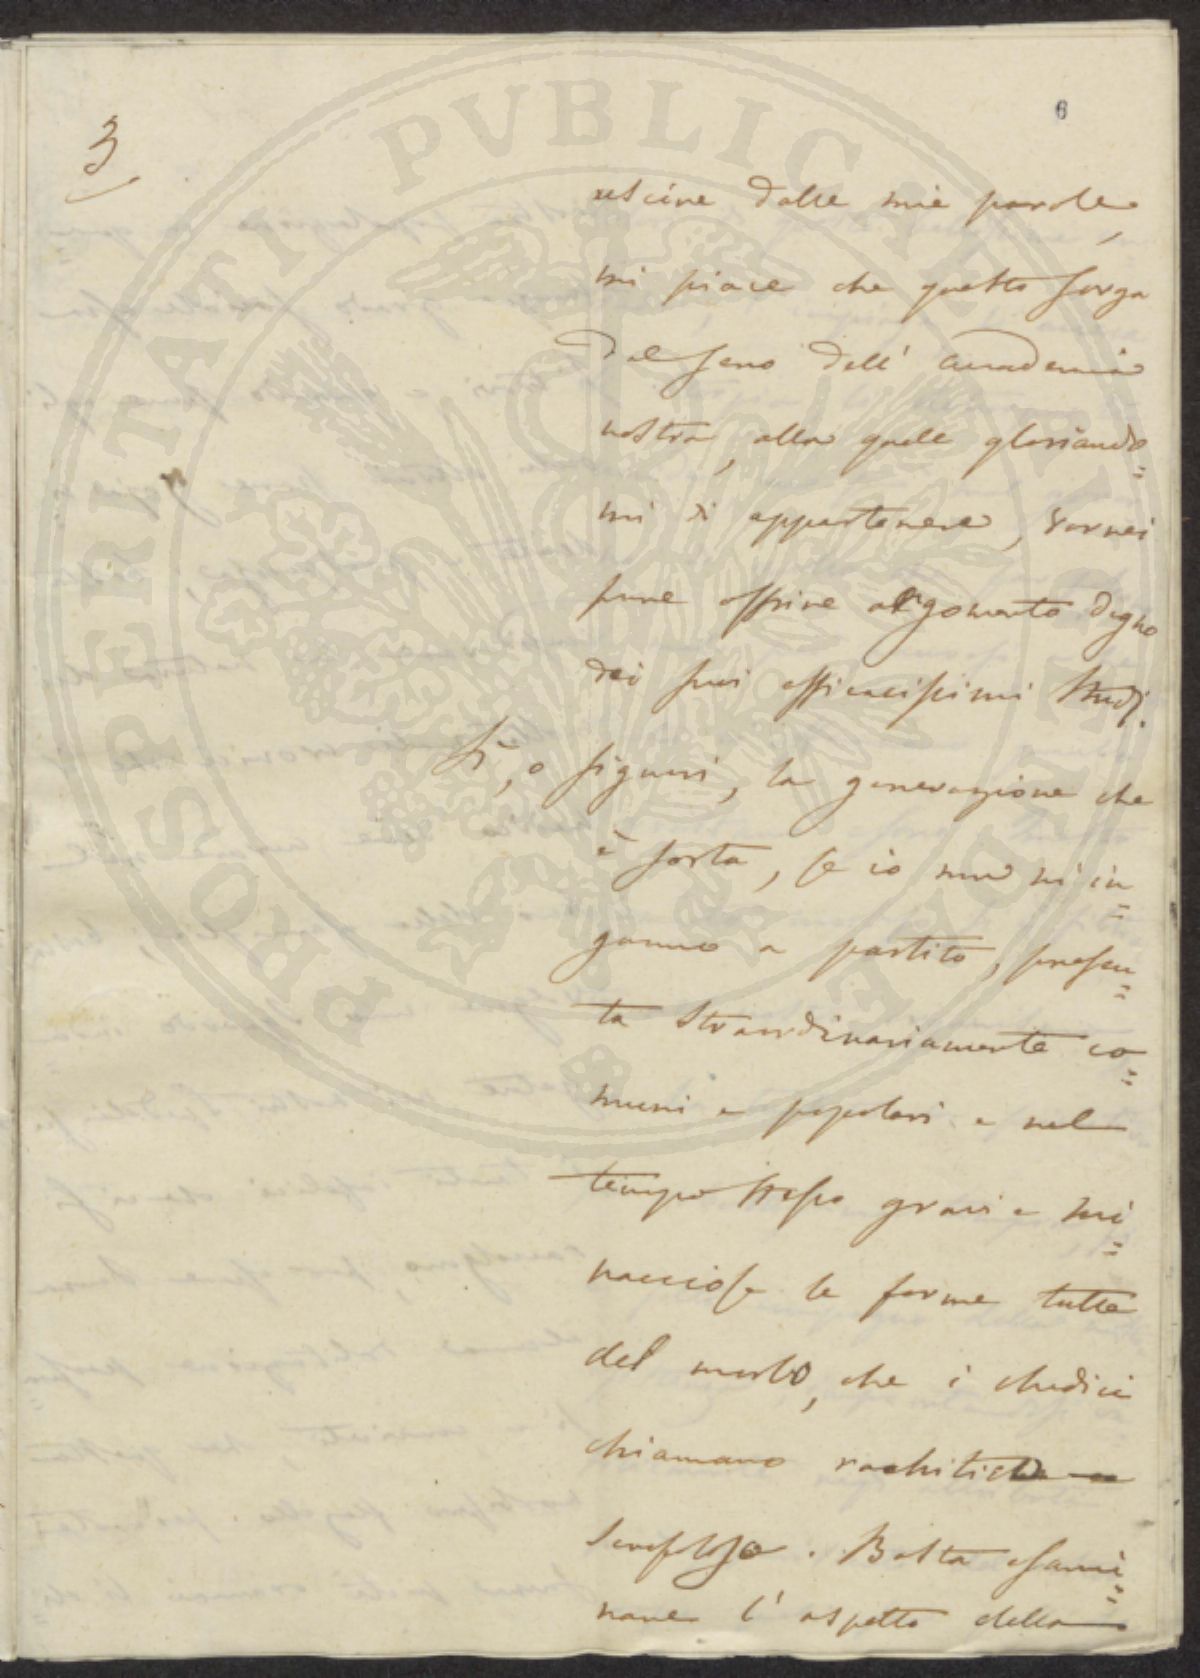 3
6
uscire dalle mie parole,
mi piace che questo sorga
dal seno dell' accademia
nostra, alla quale gloriando=
mi di appartenere, vorrei
pure offrire argomento degno
dei suoi efficacissimi studj.
Sì, o signori, la generazione che
è sorta, se io non mi in=
ganno a partito, presen=
ta straordinariamente co=
muni e popolari e nel
tempo stesso gravi e mi=
nacciose le forme tutte
del morbo, che i medici
chiamano rachitico
scrofoloso. Basta esami=
nare l' aspetto della
PROSPERITATI PVBLICAE AVGENDAE